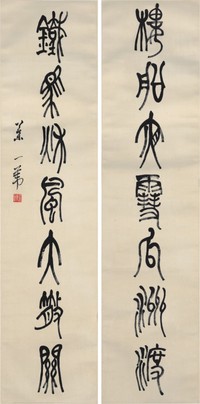 樓船夜雪瓜洲渡
鐵馬秋風大散關
葉一葦